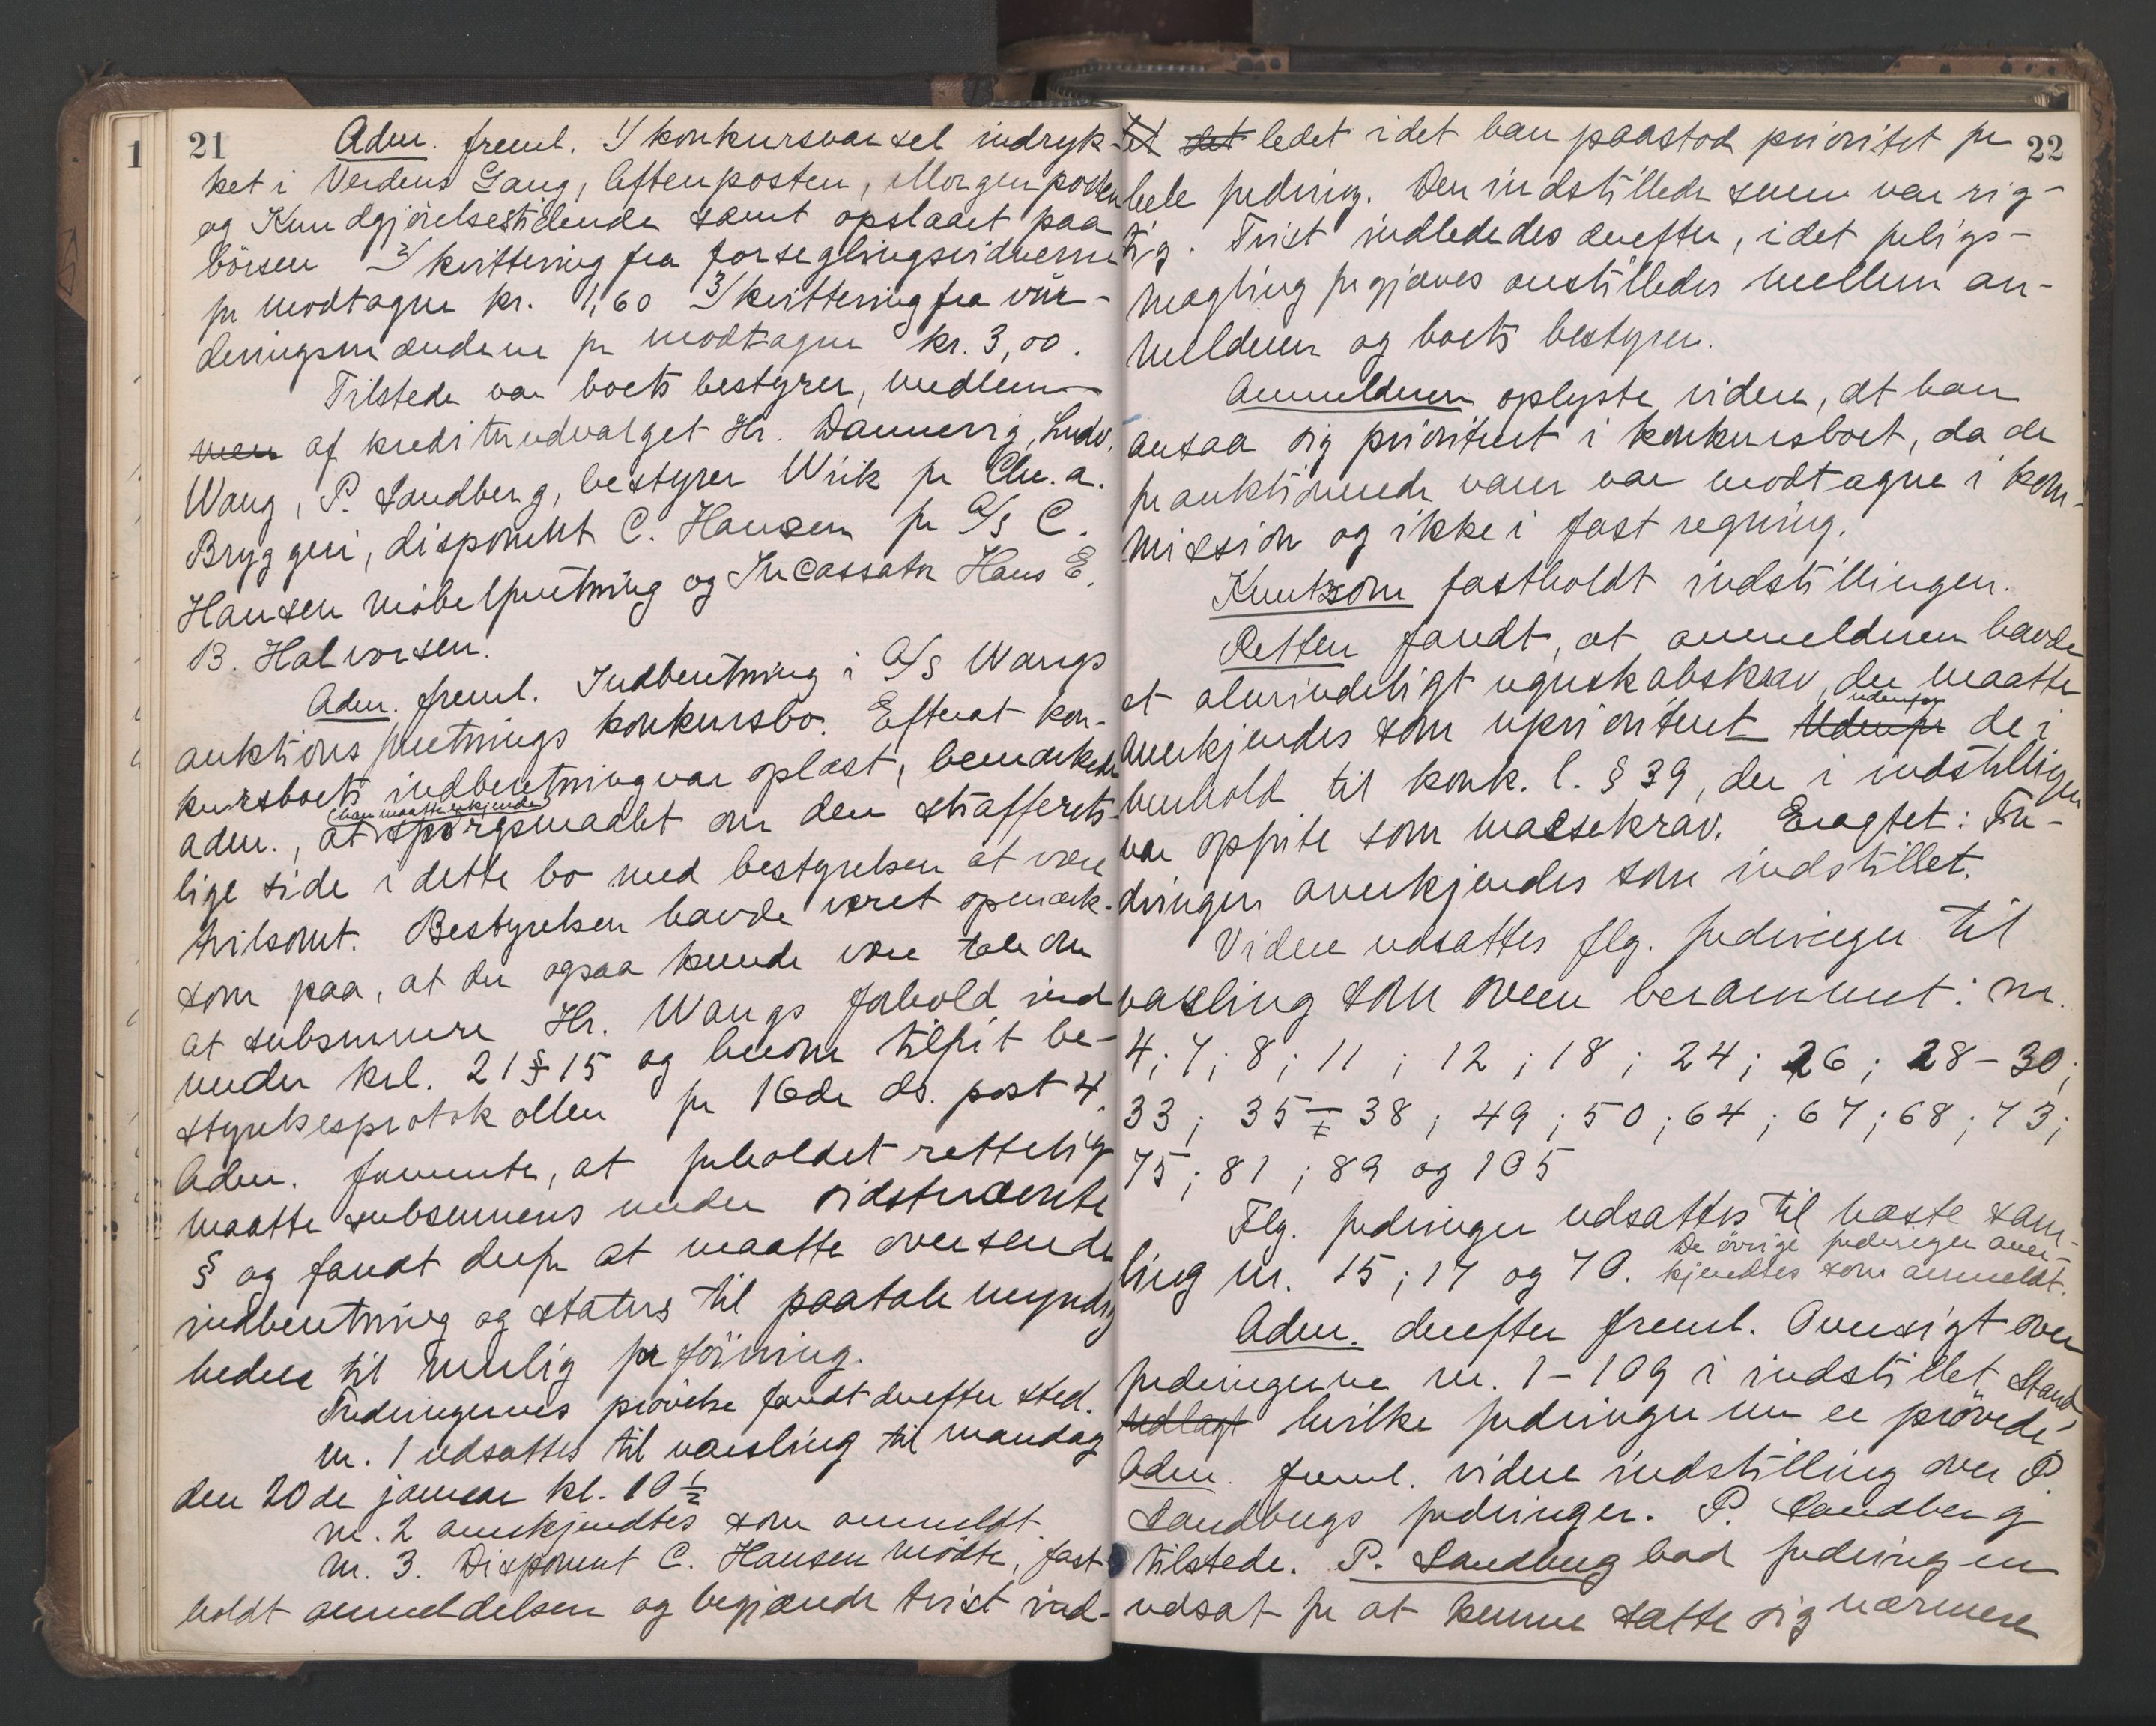 1
21
Adm. freml. 1/ konkursvarsel indryk-
ket i Verdens Gang, Aftenposten, Morgenposten
og Kundgjörelsestidende samt opslaaet paa
börsen 2/ kvittering fra forseglingsvidnerne
for modtagne kr. 1,60 3/ kvittering fra vür-
deringsmændene for modtagne kr. 3,00.
Tilstede var boets bestyrer, medlem-
men af kreditorudvalget Hr. Dannevig, Ludv.
Wang, P. Sandberg, bestyrer Wiik for Chr.a.
Bryggeri, disponent C. Hansen for A/S C.
Hansen möbelforretning og Incassator Hans E.
B. Halvorsen.
Adm. freml. Indberetning i A/S Wangs
auktionsforretnings konkursbo. Efterat kon-
kursboets indberetning var oplæst, bemærkede
(han maatte erkjende)
adm., at spörgsmaalet om den strafferets-
lige side i dette bo med bestyrelsen at være
tvilsomt. Bestyrelsen havde været opmærk-
som paa, at der ogsaa kunde være tale om
at subsumere Hr. Wangs forhold ind
under krl. 21 § 15 og herom tilført be-
styrelsesprotokollen for 16de ds. post 4.
Adm. formente, at forholdet rettelig
maatte subsumeres under sidstnævnte
§ og fandt derfor at maatte oversende
indberetning og status til paatalemyndig
heden til mulig forföining.
Fordringernes prövelse fandt derefter sted.
nr. 1 udsattes til varsling til mandag
den 20de januar kl. 10 1/2
nr. 2 anerkjendtes som anmeldt.
nr. 3. Disponent C. Hansen mödte, fast-
holdt anmeldelsen og begjærede tvist ind-
22
tet det ledet idet han paastod prioritet for
hele fordring. Den indstillede sum var rig-
tig. Tvist indlededes derefter, idet forligs-
mægling forgjæves anstilledes mellem an-
melderen og boets bestyrer.
Anmelderen oplyste videre, at han
ansaa sig prioritert i konkursboet, da de
forauktionerede varer var modtagne i kom-
mission og ikke i fast regning.
Knutzon fastholdt indstillingen.
Retten fandt, at anmelderen havde
et almindeligt regnskabskrav, der maatte
udenfor
anerkjendes som uprioritert Udenfor de i
henhold til konk. l. § 39, der i indstillingen
var opförte som massekrav. Eragtet: For-
dringen anerkjendes som indstillet.
Videre udsattes flg. fordringer til
varsling som oven berammet: nr.
4; 7; 8; 11; 12; 18; 24; 26; 28-30;
33; 35-38; 49; 50; 64; 67; 68; 73;
75; 81; 89 og 105
Flg. fordringer udsattes til næste sam-
De övrige fordringer aner-
ling nr. 15; 17 og 70. kjendtes som anmeldt.
Adm. derefter freml. Oversigt over
fordringerne nr. 1-109 i indstillet Stand,
vedlagt hvilke fordringer nu er prövede
Adm. freml. videre indstilling over P.
Sandbergs fordringer. P. Sandberg
tilstede. P. Sandberg bad fordringen
udsat for at kunne sætte sig nærmere